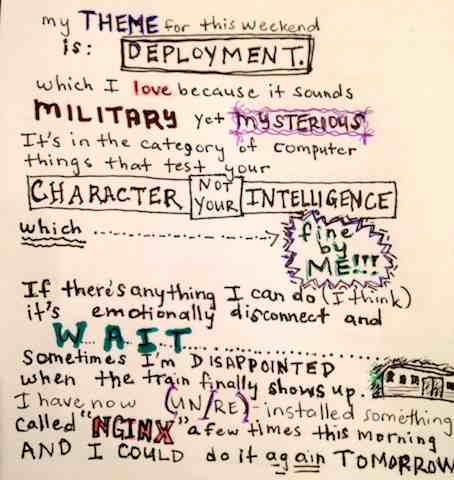 my THEME for this weekend
is: DEPLOYMENT.
which I love because it sounds
MILITARY yet MYSTERIOUS
It's in the category of computer
things that test your
CHARACTER NOT YOUR INTELLIGENCE
which fine by ME!!!
If there's anything I can do (I think)
it's emotionally disconnect and
WAIT
Sometimes I'm DISAPPOINTED
when the train finally shows up.
I have now (UN/RE)-installed something
called "NGINX" a few times this morning
AND I COULD do it again TOMORROW